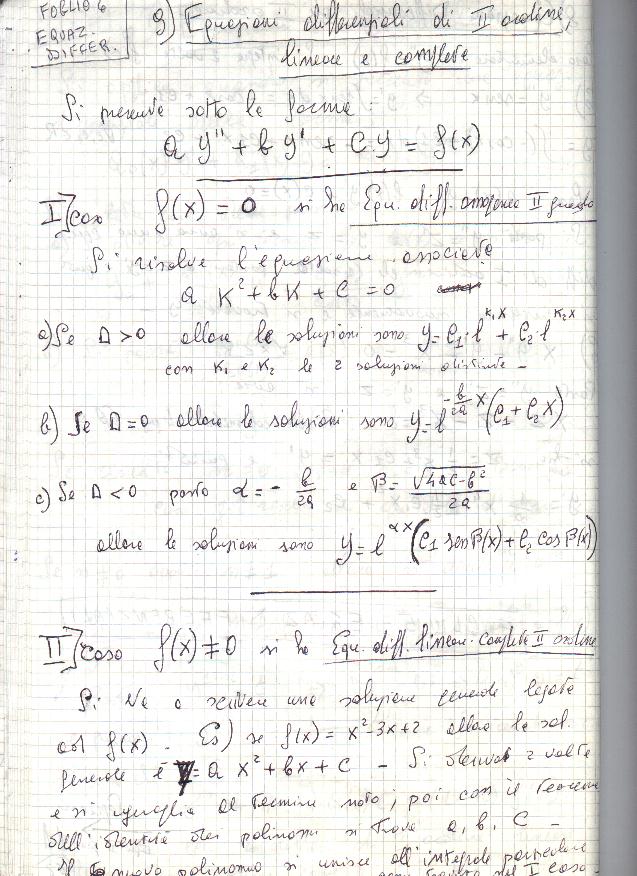 FOGLIO 6
EQUAZ.
DIFFER.
9) Equazioni differenziali di II ordine,
lineare e complete
Si presenta sotto la forma:
a y" + b y' + c y = f(x)
I] caso f(x) = 0 si ha Equ. diff. omogenee II grado
Si risolve l'equazione associata
a K² + b K + C = 0
a) Se Δ > 0 allora le soluzioni sono y = C₁·l^{K₁X} + C₂·l^{K₂X}
con K₁ e K₂ le 2 soluzioni distinte -
b) Se Δ = 0 allora le soluzioni sono y = l^{-\frac{b}{2a}X}(C₁ + C₂X)
c) Se Δ < 0 posto α = - b/2a e β = √(4ac-b²)/2a
allora le soluzioni sono y = l^{αX}(C₁ sen β(x) + C₂ cos β(x))
II] caso f(x) ≠ 0 si ha Equ. diff. lineari complete II ordine
Si va a scrivere una soluzione generale legata
ad f(x). Es) se f(x) = x²-3x+2 allora la sol.
generale è y = a x² + bx + c - Si deriva 2 volte
e si uguaglia al termine noto; poi con il teorema
dell'identità dei polinomi si trova a, b, c -
Il nuovo polinomio si unisce all'integrale particolare
del I caso